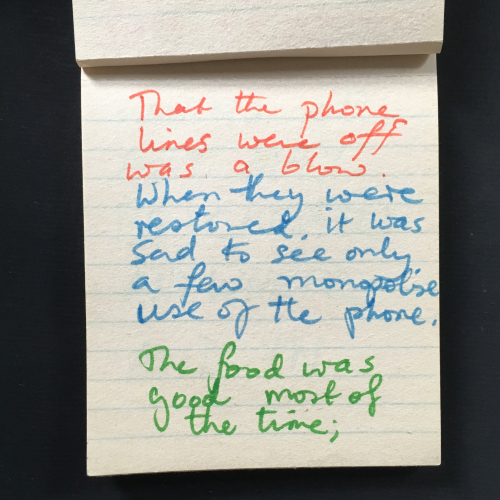 That the phone
lines were off
was a blow.
When they were
restored, it was
sad to see only
a few monopolise
use of the phone.
The food was
good most of
the time;